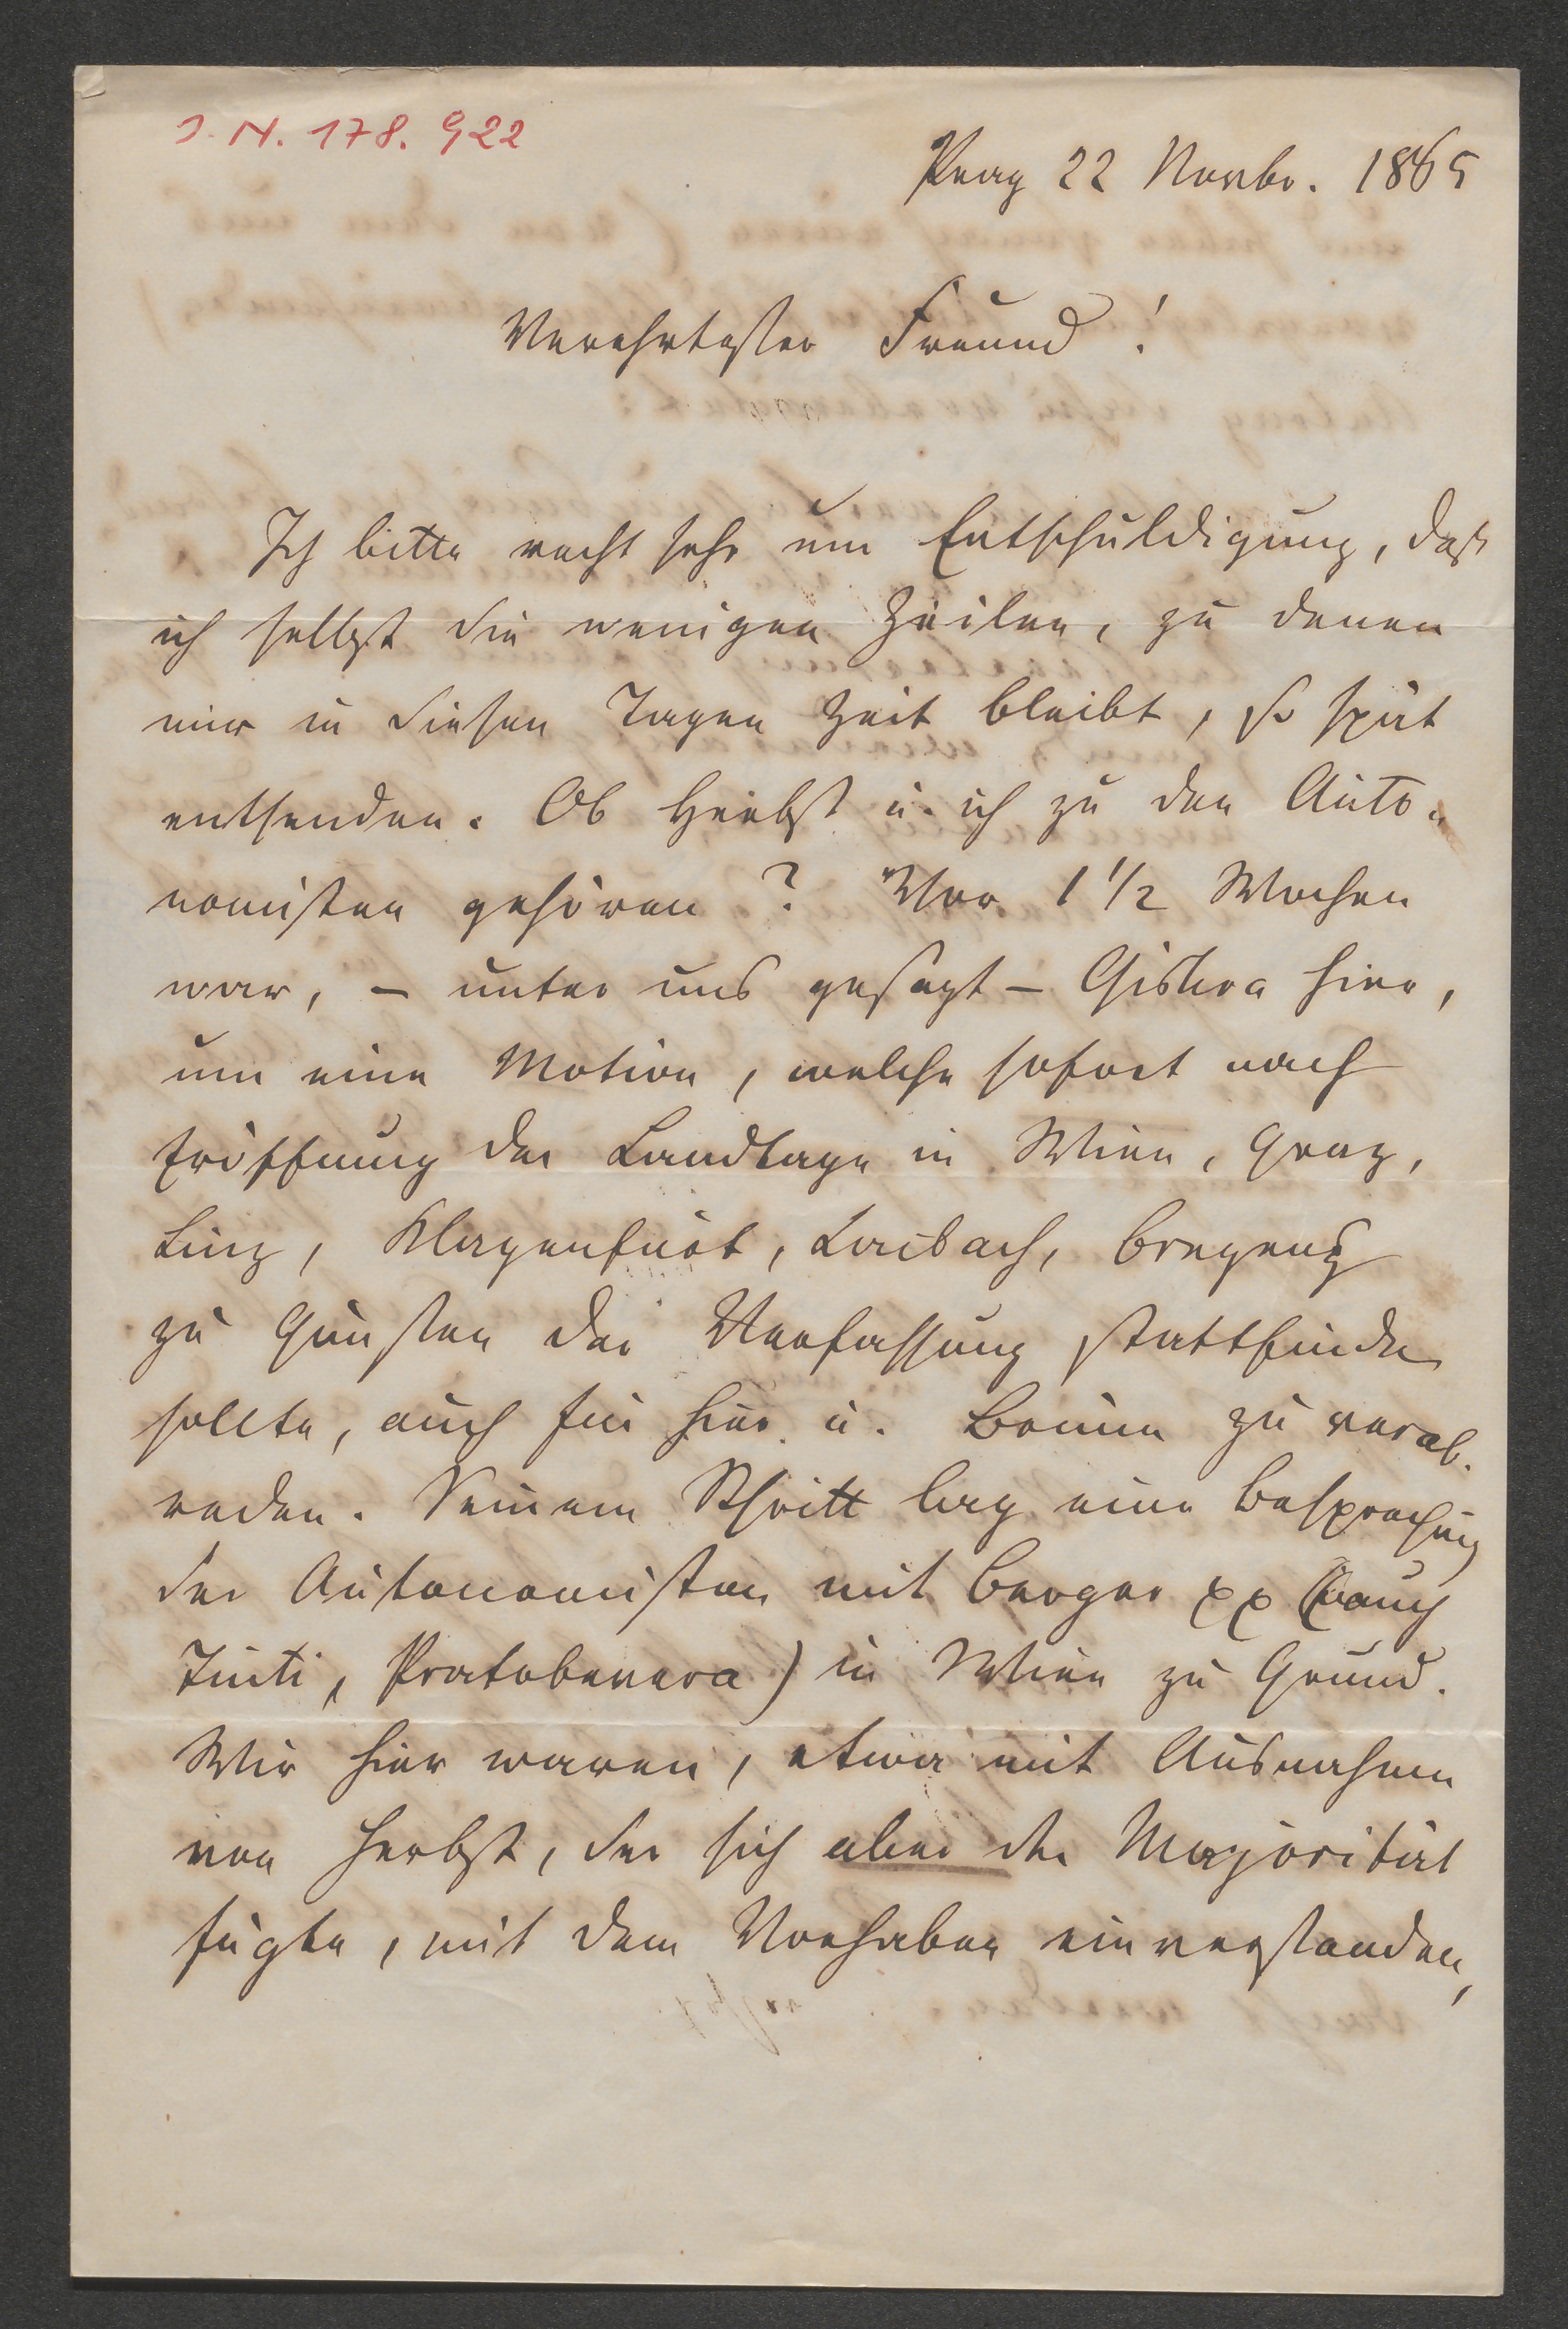 J. N. 178.922
Prag 22 Novbr. 1865
Verehrtester Freund!
Ich bitte recht sehr um Entschuldigung, daß
ich selbst die wenigen Zeilen, zu denen
mir in diesen Tagen Zeit bleibt, so spät
entsenden. Ob Herbst u. ich zu den Auto-
nomisten gehören? Vor 1 1/2 Wochen
war, – unter uns gesagt – Giskra hier,
um eine Motion, welche sofort nach
Eröffnung der Landtage in Wien, Graz,
Linz, Klagenfurt, Laibach, Bregenz
zu Gunsten der Verfassung stattfinden
sollte, auch für hier u. Brünn zu verab-
reden. Seinem Schritt lag eine Besprechung
der Autonomisten mit Berger xx (auch
Tinti, Pratobevera) in Wien zu Grund.
Wir hier waren, etwa mit Ausnahme
von Herbst, der sich aber der Majorität
fügte, mit dem Vorhaben einverstanden,